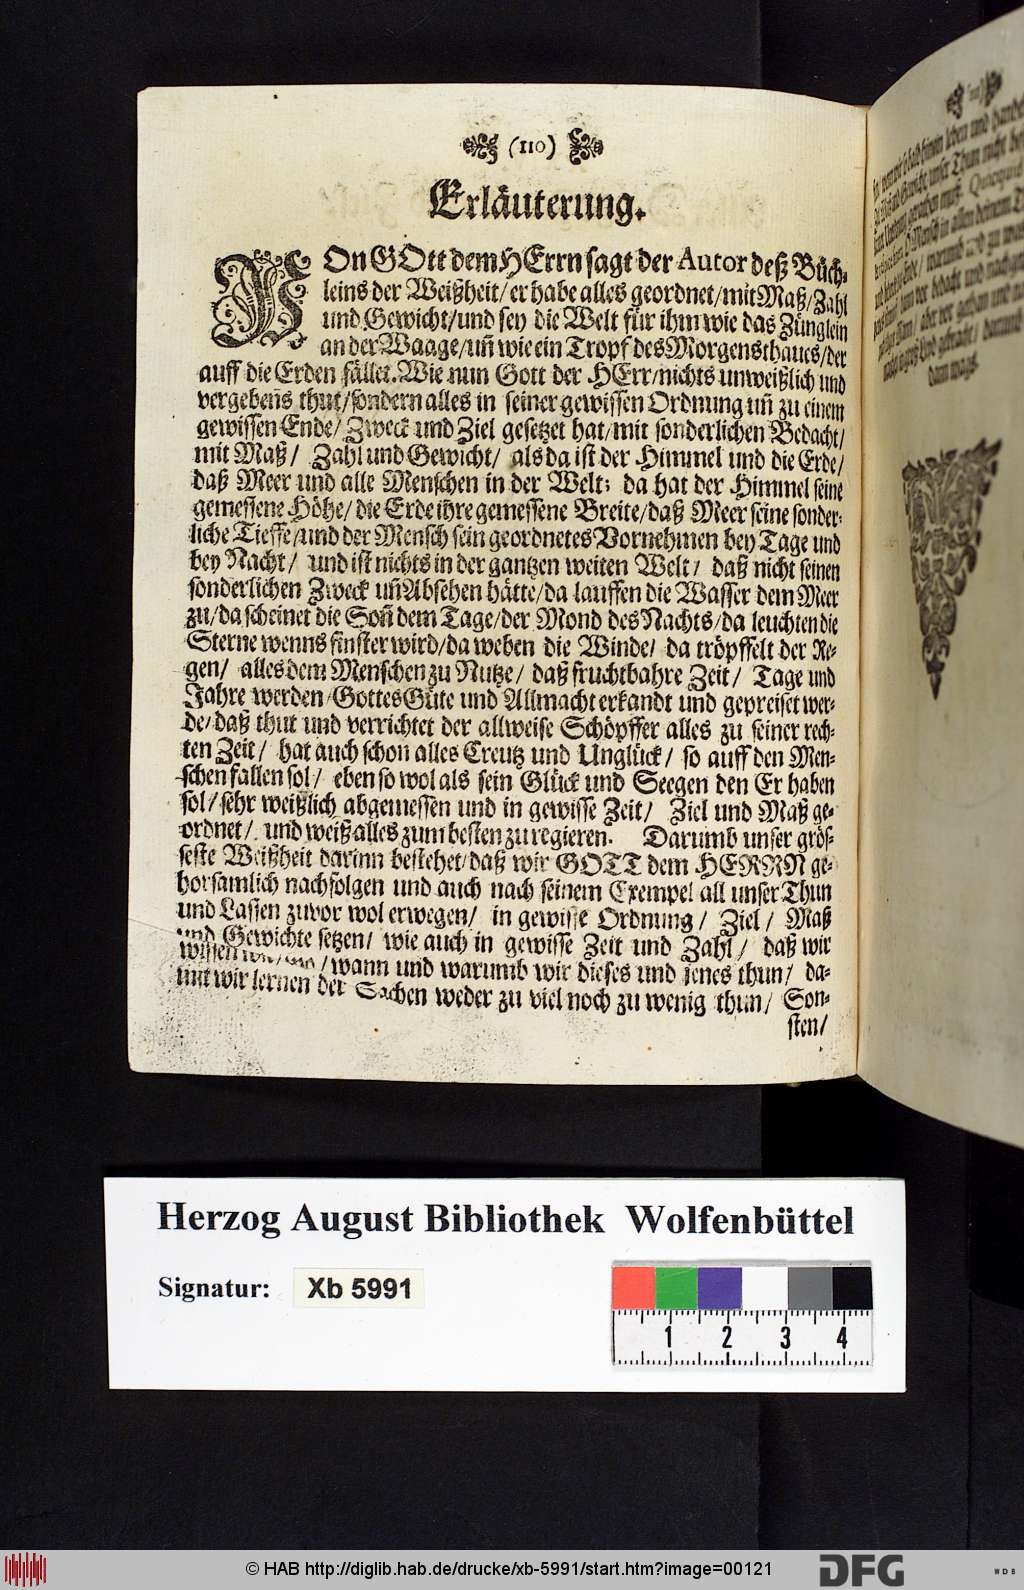 (110)
Erläuterung.
VOn GOtt dem HErrn sagt der Autor deß Büch-
leins der Weißheit/ er habe alles geordnet/ mit Maß/ Zahl
und Gewicht/ und sey die Welt für ihm wie das Zünglein
an der Waage/ uñ wie ein Tropf des Morgensthaues/ der
auff die Erden fället. Wie nun Gott der HErr/ nichts unweißlich und
vergebens thut/ sondern alles in seiner gewissen Ordnung uñ zu einem
gewissen Ende/ Zweck und Ziel gesetzet hat/ mit sonderlichen Bedacht/
mit Maß/ Zahl und Gewicht/ als da ist der Himmel und die Erde/
daß Meer und alle Menschen in der Welt; da hat der Himmel seine
gemessene Höhe/ die Erde ihre gemessene Breite/ daß Meer seine sonder-
liche Tieffe/ und der Mensch sein geordnetes Vornehmen bey Tage und
bey Nacht/ und ist nichts in der gantzen weiten Welt/ daß nicht seinen
sonderlichen Zweck uñ Absehen hätte/ da lauffen die Wasser dem Meer
zu/ da scheinet die Soñ dem Tage/ der Mond des Nachts/ da leuchten die
Sterne wenns finster wird/ da weben die Winde/ da tröpffelt der Re-
gen/ alles dem Menschen zu Nutze/ daß fruchtbahre Zeit/ Tage und
Jahre werden/ Gottes Güte und Allmacht erkandt und gepreiset wer-
de/ daß thut und verrichtet der allweise Schöpffer alles zu seiner rech-
ten Zeit/ hat auch schon alles Creutz und Unglück/ so auff den Men-
schen fallen sol/ eben so wol als sein Glück und Seegen den Er haben
sol/ sehr weißlich abgemessen und in gewisse Zeit/ Ziel und Maß ge-
ordnet/ und weiß alles zum besten zu regieren. Darumb unser grös-
seste Weißheit darinn bestehet/ daß wir GOTT dem HERRN ge-
horsamlich nachfolgen und auch nach seinem Exempel all unser Thun
und Lassen zuvor wol erwegen/ in gewisse Ordnung/ Ziel/ Maß
und Gewichte setzen/ wie auch in gewisse Zeit und Zahl/ daß wir
wissen wie/ wo/ wann und warumb wir dieses und jenes thun/ da-
mit wir lernen der Sachen weder zu viel noch zu wenig thun/ Son-
sten/
Herzog August Bibliothek Wolfenbüttel
Signatur: Xb 5991
1 2 3 4
© HAB http://diglib.hab.de/drucke/xb-5991/start.htm?image=00121
DFG
WDB